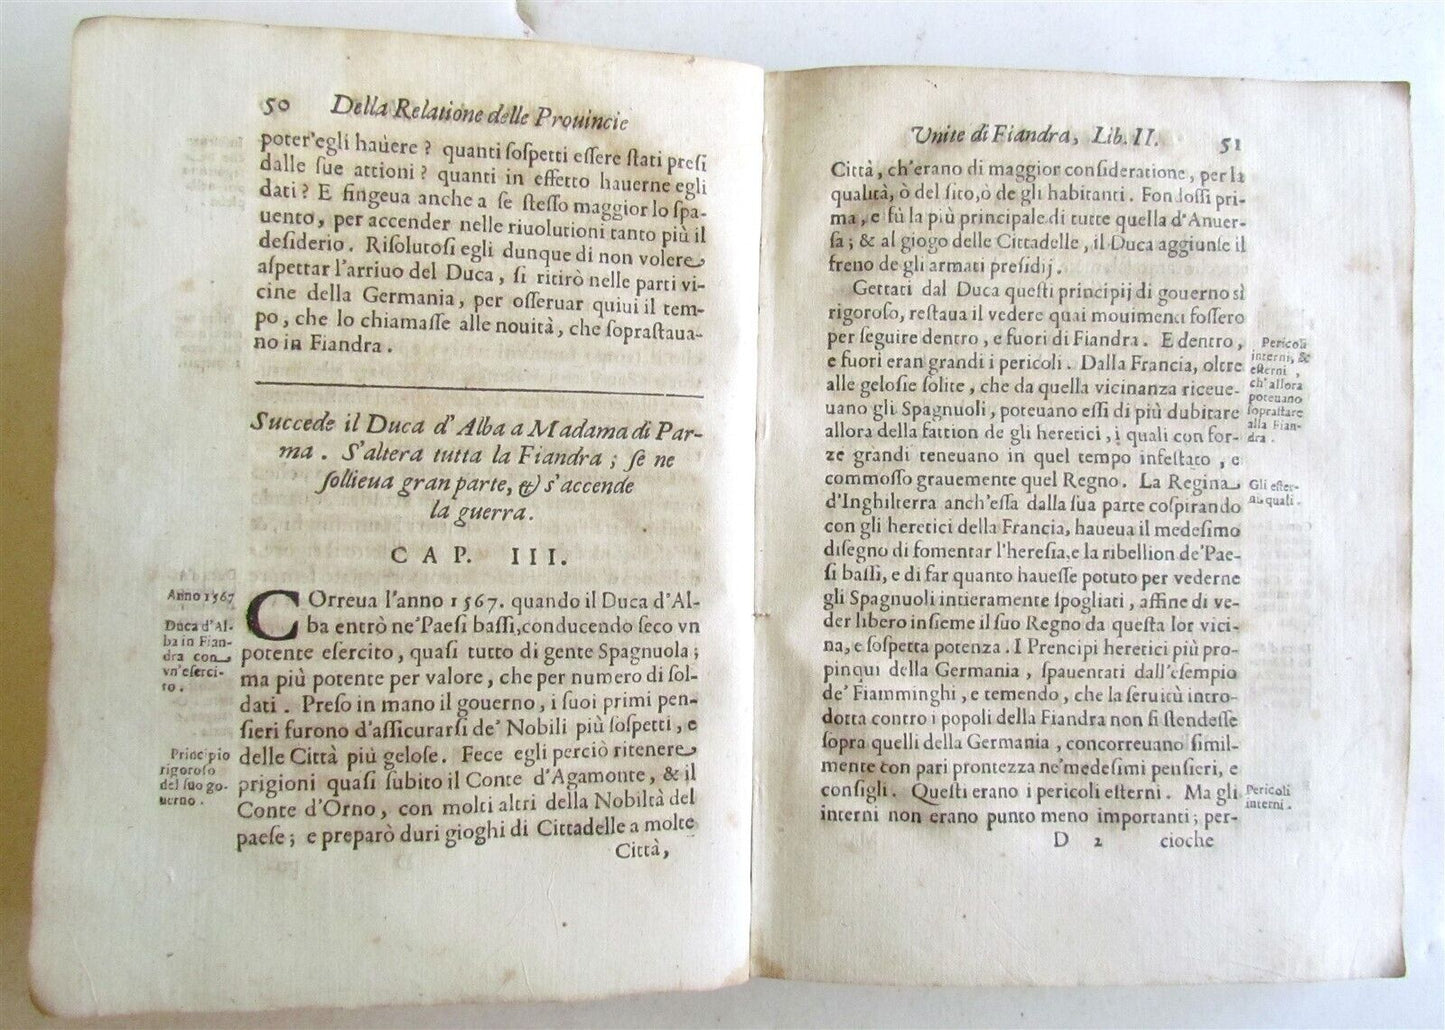 50 Della Relatione delle Prouincie
poter'egli hauere ? quanti ſoſpetti eſſere ſtati preſi
dalle ſue attioni ? quanti in effetto hauerne egli
dati ? E fingeua anche a ſè ſteſſo maggior lo ſpa-
uento, per accender nelle riuolutioni tanto più il
deſiderio. Riſolutoſi egli dunque di non volere
aſpettar l'arriuo del Duca, ſi ritirò nelle parti vi-
cine della Germania, per oſſeruar quiui il tem-
po, che lo chiamaſſe alle nouità, che ſopraſtaua-
no in Fiandra.
Succede il Duca d'Alba a Madama di Par-
ma. S'altera tutta la Fiandra; ſe ne
ſollieua gran parte, & s'accende
la guerra.
CAP. III.
Anno 1567
Duca d'Al-
ba in Fian-
dra con
vn'eſerci-
to.
COrreua l'anno 1567. quando il Duca d'Al-
ba entrò ne'Paeſi baſſi, conducendo ſeco vn
potente eſercito, quaſi tutto di gente Spagnuola;
ma più potente per valore, che per numero di ſol-
dati. Preſo in mano il gouerno, i ſuoi primi pen-
ſieri furono d'aſſicurarſi de' Nobili più ſoſpetti, e
delle Città più geloſe. Fece egli perciò ritenere
prigioni quaſi ſubito il Conte d'Agamonte, & il
Conte d'Orno, con molti altri della Nobiltà del
paeſe; e preparò duri gioghi di Cittadelle a molte
Principio
rigoroſo
del ſuo go-
uerno.
Città,
Vnite di Fiandra, Lib. II. 51
Città, ch'erano di maggior conſideratione, per la
qualità, ò del ſito, ò de gli habitanti. Fondoſſi pri-
ma, e fù la più principale di tutte quella d'Anuer-
ſa; & al giogo delle Cittadelle, il Duca aggiunſe il
freno de gli armati preſidij.
Gettati dal Duca queſti principij di gouerno sì
rigoroſo, reſtaua il vedere quai mouimenti foſſero
per ſeguire dentro, e fuori di Fiandra. E dentro,
e fuori eran grandi i pericoli. Dalla Francia, oltre
alle geloſie ſolite, che da quella vicinanza riceue-
uano gli Spagnuoli, poteuano eſſi di più dubitare
allora della fattion de gli heretici, i quali con for-
ze grandi teneuano in quel tempo infeſtato, e
commoſſo grauemente quel Regno. La Regina
d'Inghilterra anch'eſſa dalla ſua parte coſpirando
con gli heretici della Francia, haueua il medeſimo
diſegno di fomentar l'hereſia, e la ribellion de'Pae-
ſi baſſi, e di far quanto haueſſe potuto per vederne
gli Spagnuoli intieramente ſpogliati, affine di ve-
der libero inſieme il ſuo Regno da queſta lor vici-
na, e ſoſpetta potenza. I Prencipi heretici più pro-
pinqui della Germania, ſpauentati dall'eſempio
de' Fiamminghi, e temendo, che la ſeruitù intro-
dotta contro i popoli della Fiandra non ſi ſtendeſſe
ſopra quelli della Germania, concorreuano ſimil-
mente con pari prontezza ne'medeſimi penſieri, e
conſigli. Queſti erano i pericoli eſterni. Ma gli
interni non erano punto meno importanti; per-
Pericoli
interni, &
eſterni,
ch'allora
poteuano
ſopraſtare
alla Fian-
dra.
Gli eſter-
ni quali.
Pericoli
interni.
D 2 cioche